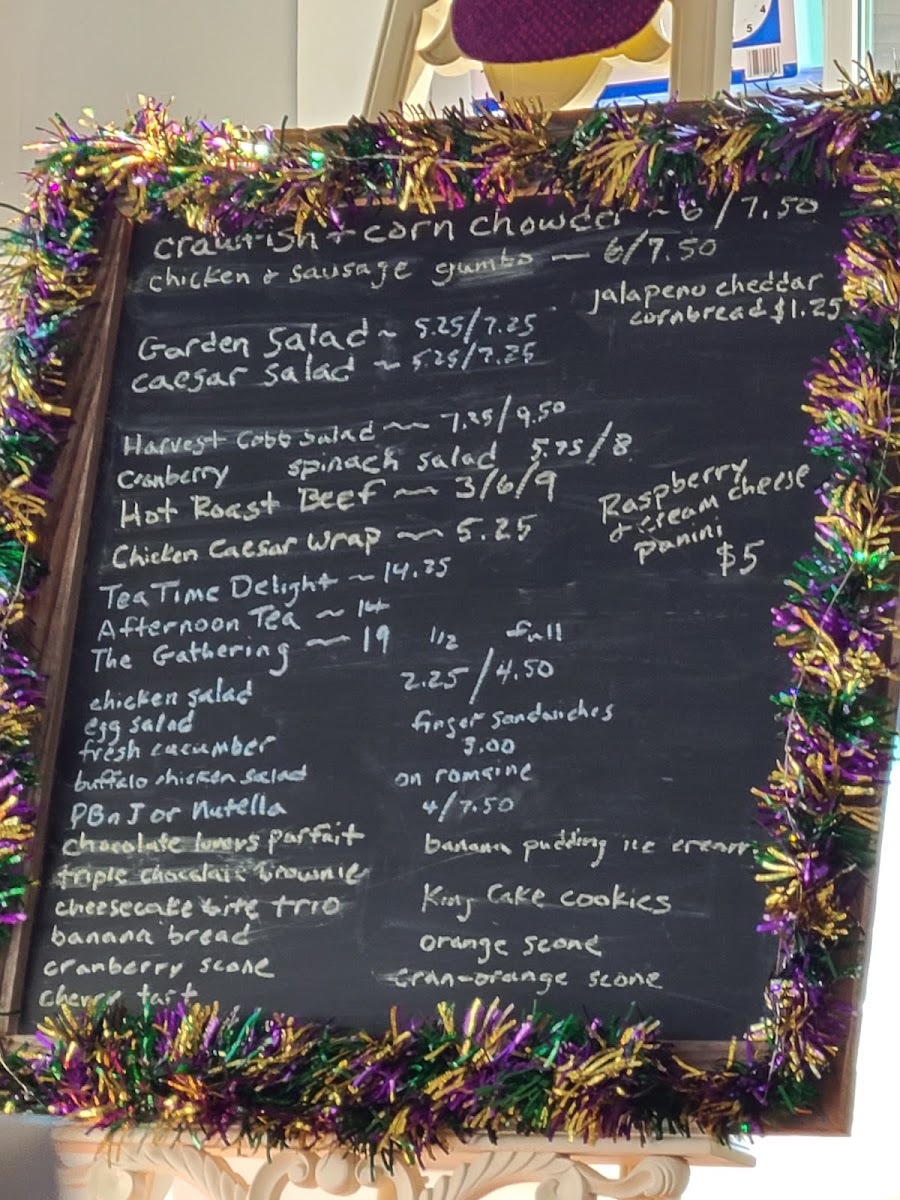 crawfish & corn chowder ~ 6/7.50
chicken & sausage gumbo — 6/7.50
jalapeno cheddar
cornbread $1.25
Garden Salad ~ 5.25/7.25
caesar salad ~ 5.25/7.25
Harvest Cobb Salad ~~ 7.25/9.50
Cranberry spinach salad 5.75/8
Hot Roast Beef ~ 3/6/9
Raspberry
& cream cheese
panini
$5
Chicken Caesar Wrap ~ 5.25
Tea Time Delight ~ 14.25
Afternoon Tea ~ 14
The Gathering ~ 19
1/2 full
2.25/4.50
chicken salad
egg salad
finger sandwiches
fresh cucumber
3.00
buffalo chicken salad
on romaine
PBnJ or Nutella
4/7.50
chocolate lovers parfait
banana pudding ice cream
triple chocolate brownie
cheesecake bite trio
King Cake cookies
banana bread
orange scone
cranberry scone
cran-orange scone
cherry tart
4
5